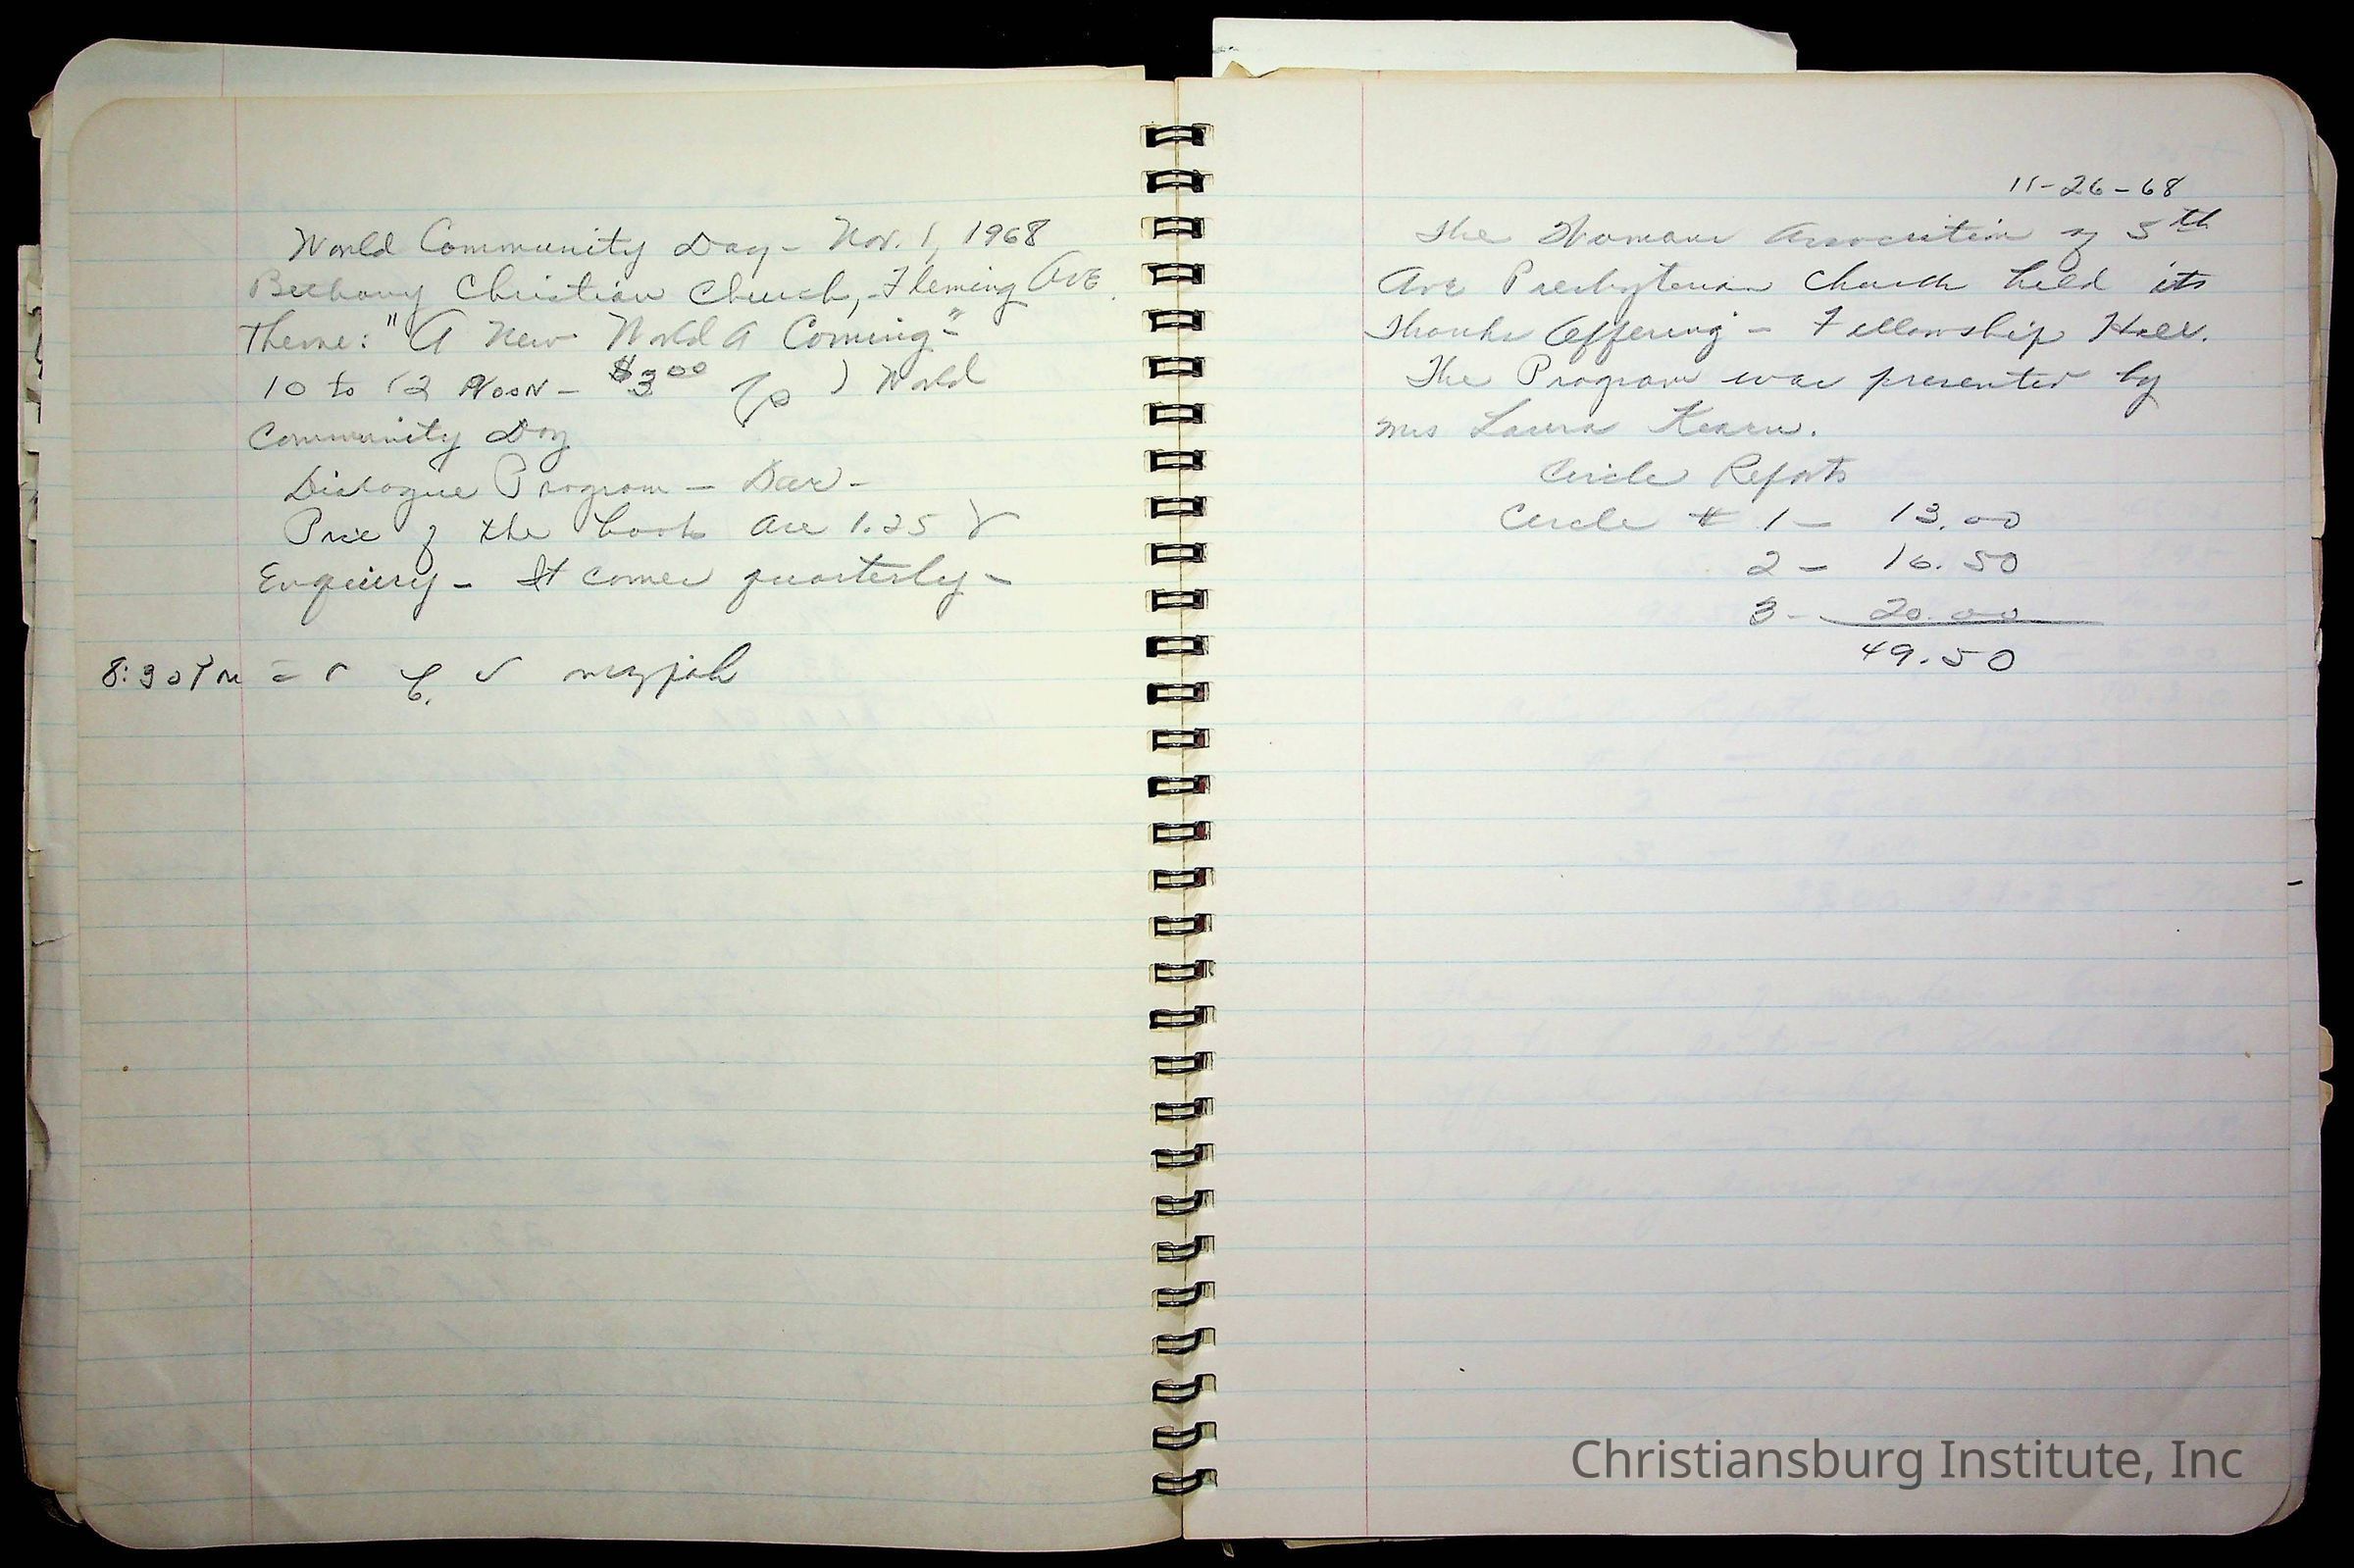 World Community Day - Nov. 1, 1968
Bethany Christian Church, - Fleming Ave.
Theme: "A New World A Coming" -
10 to 12 Noon - $3.00 ) World
Community Day
Dialogue Program -
Price of the book are 1.25
Enquiry - It comes quarterly -
8:30 PM =
11-26-68
The Womans Association of 5th
Ave Presbyterian Church held its
Thanks Offering - Fellowship Hall.
The Program was presented by
Mrs Laura Kearn.
Circle Reports
Circle # 1 - 13.00
2 - 16.50
3 - 20.00
49.50
Christiansburg Institute, Inc